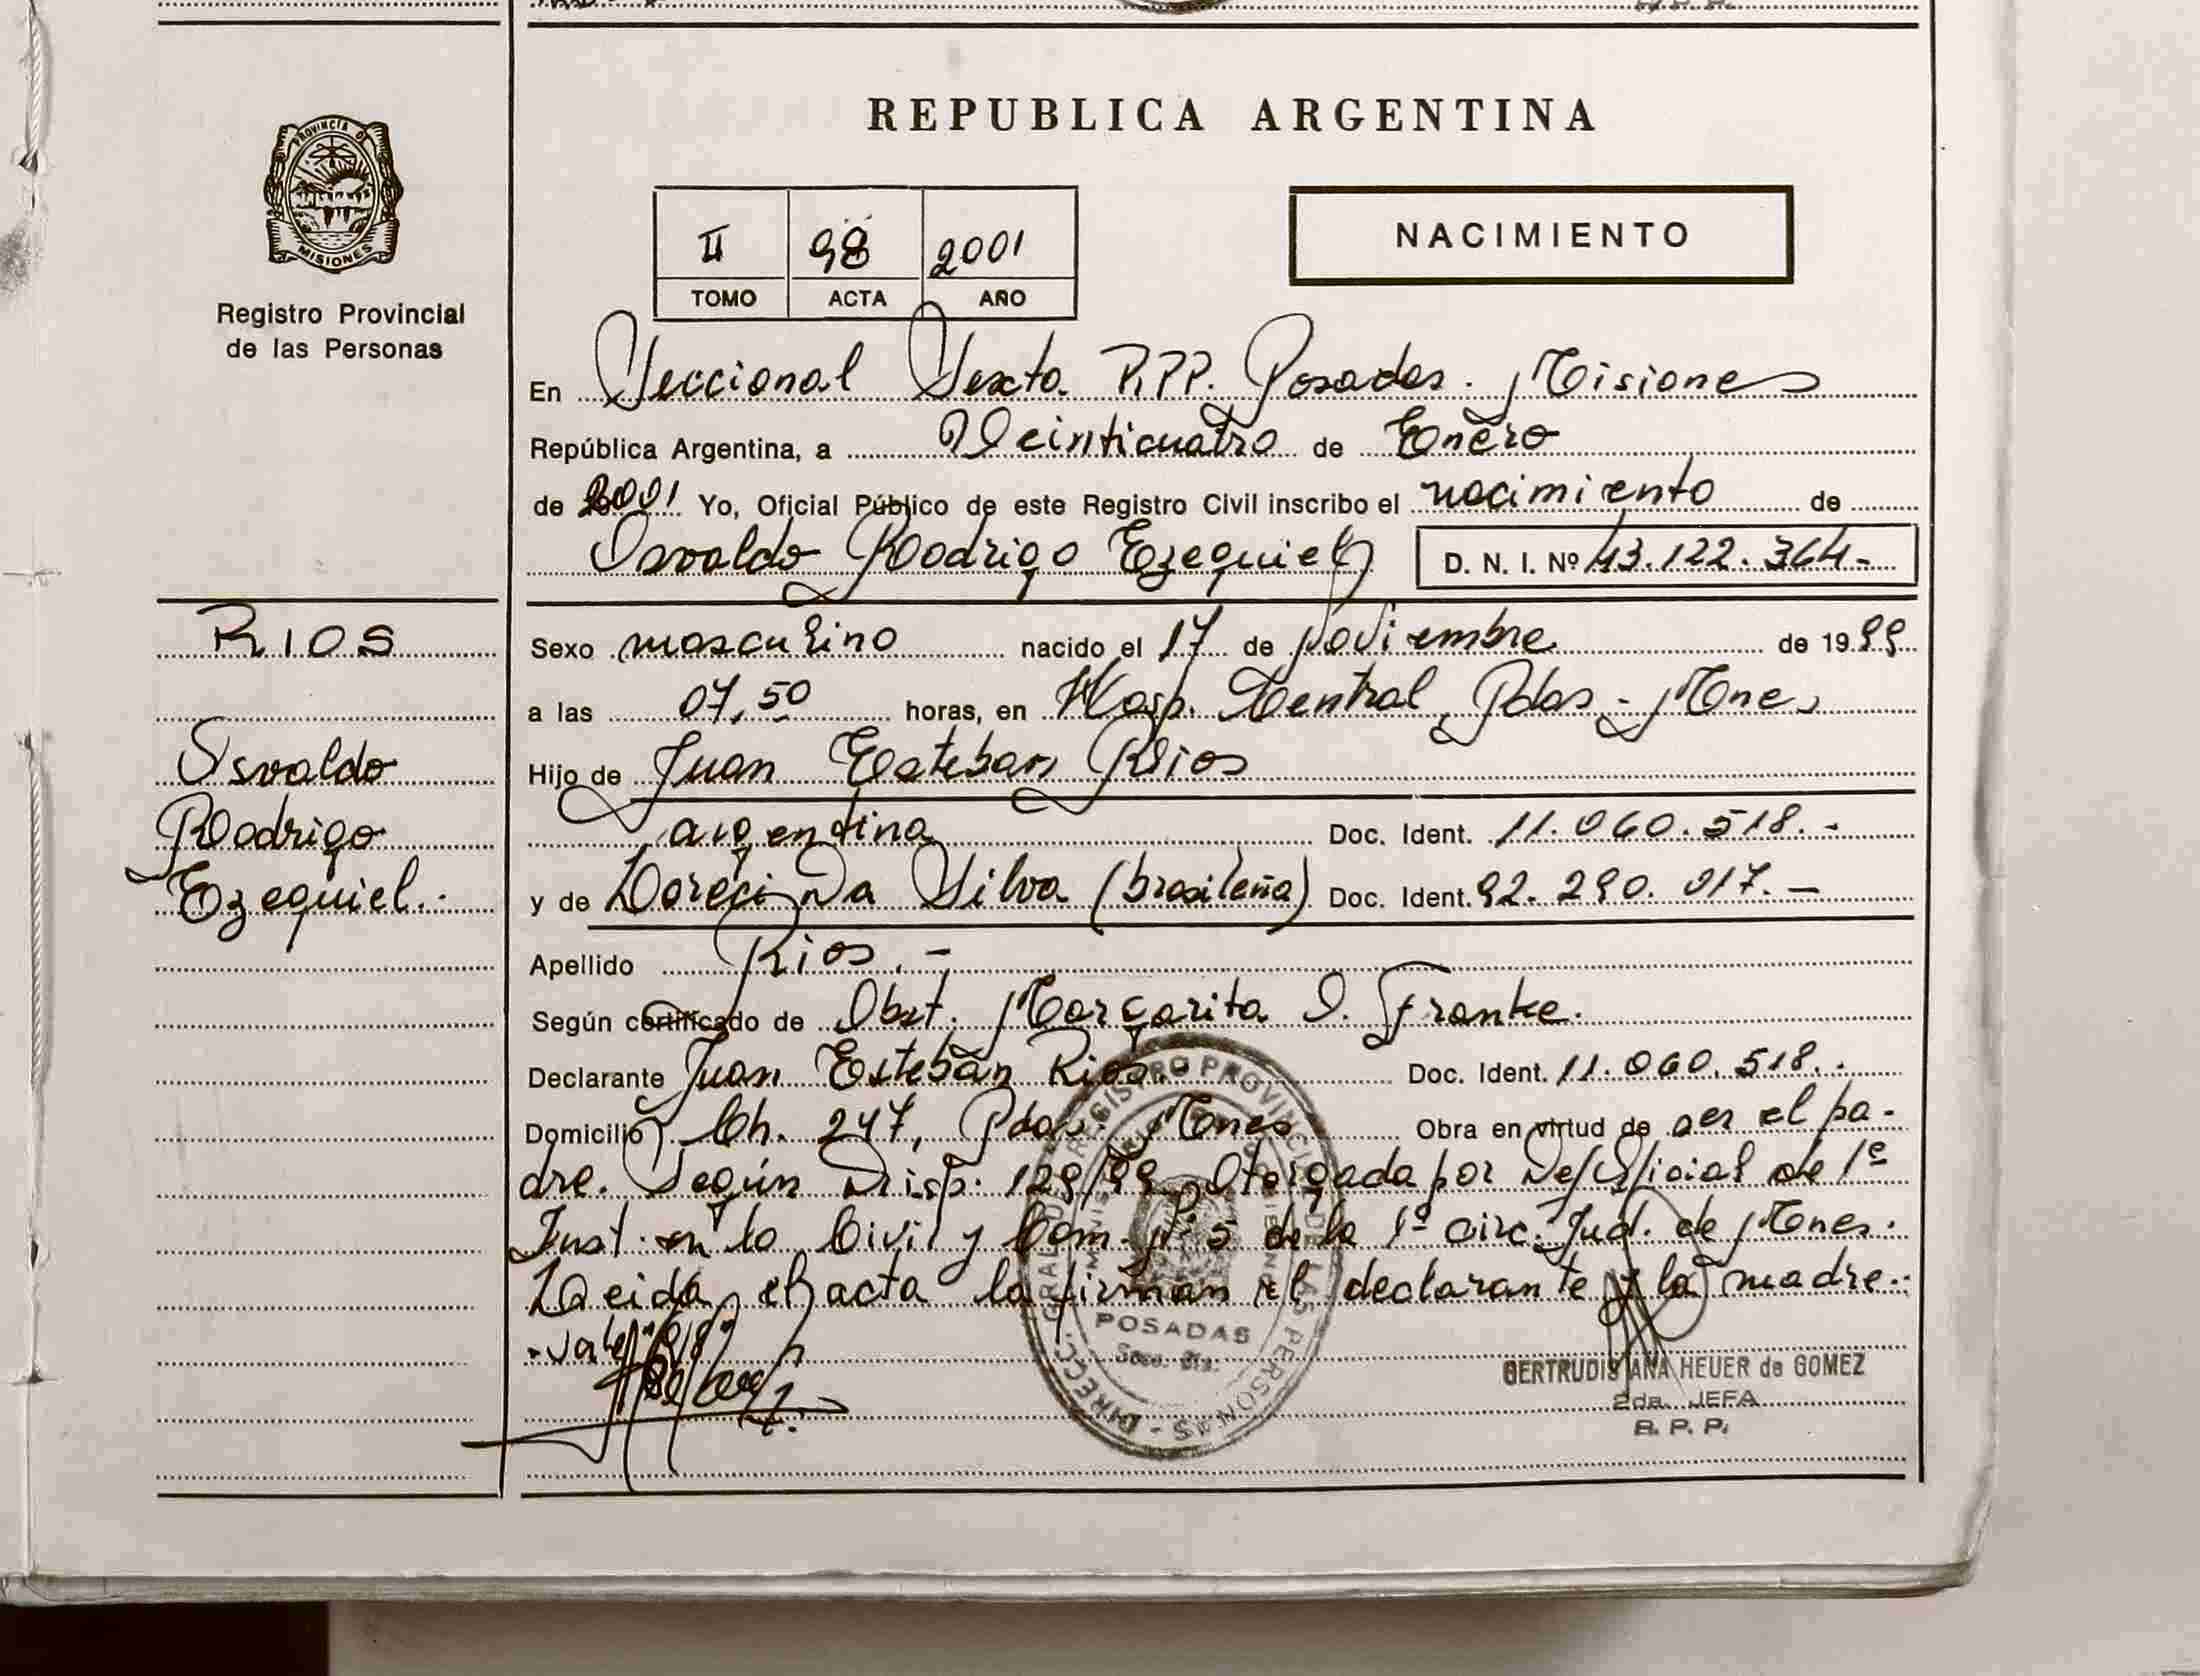 PROVINCIA DE
MISIONES
Registro Provincial
de las Personas
RIOS
Osvaldo
Rodrigo
Ezequiel.-
REPUBLICA ARGENTINA
II 98 2001
TOMO ACTA AÑO
NACIMIENTO
En Seccional Sexta R.P.P. Posadas. Misiones
República Argentina, a Veinticuatro de Enero
de 2001 Yo, Oficial Público de este Registro Civil inscribo el nacimiento de
Osvaldo Rodrigo Ezequiel D. N. I. Nº 43.122.364-
Sexo masculino nacido el 17 de Noviembre de 1999
a las 07,50 horas, en Hosp. Central Pdas - Mnes
Hijo de Juan Esteban Rios
argentina Doc. Ident. 11.060.518.-
y de Doreci Da Silva (brasileña) Doc. Ident. 92.290.017.-
Apellido Rios.-
Según certificado de Obst. Margarita O. Franke.
Declarante Juan Esteban Rios.- Doc. Ident. 11.060.518..
Domicilio Ch. 247, Pdas. Mnes Obra en virtud de ser el pa-
dre. Según Disp. 129/99 Otorgada por Def. Oficial de 1ª
Inst. en lo Civil y Com. Nº 5 de la 1ª Circ. Jud. de Mnes.
Leida el acta la firman el declarante y la madre.-
DIRECC. GRAL. DEL REGISTRO PROVINCIAL DE LAS PERSONAS -
POSADAS
GERTRUDIS ANA HEUER de GOMEZ
2da. JEFA
R. P. P.